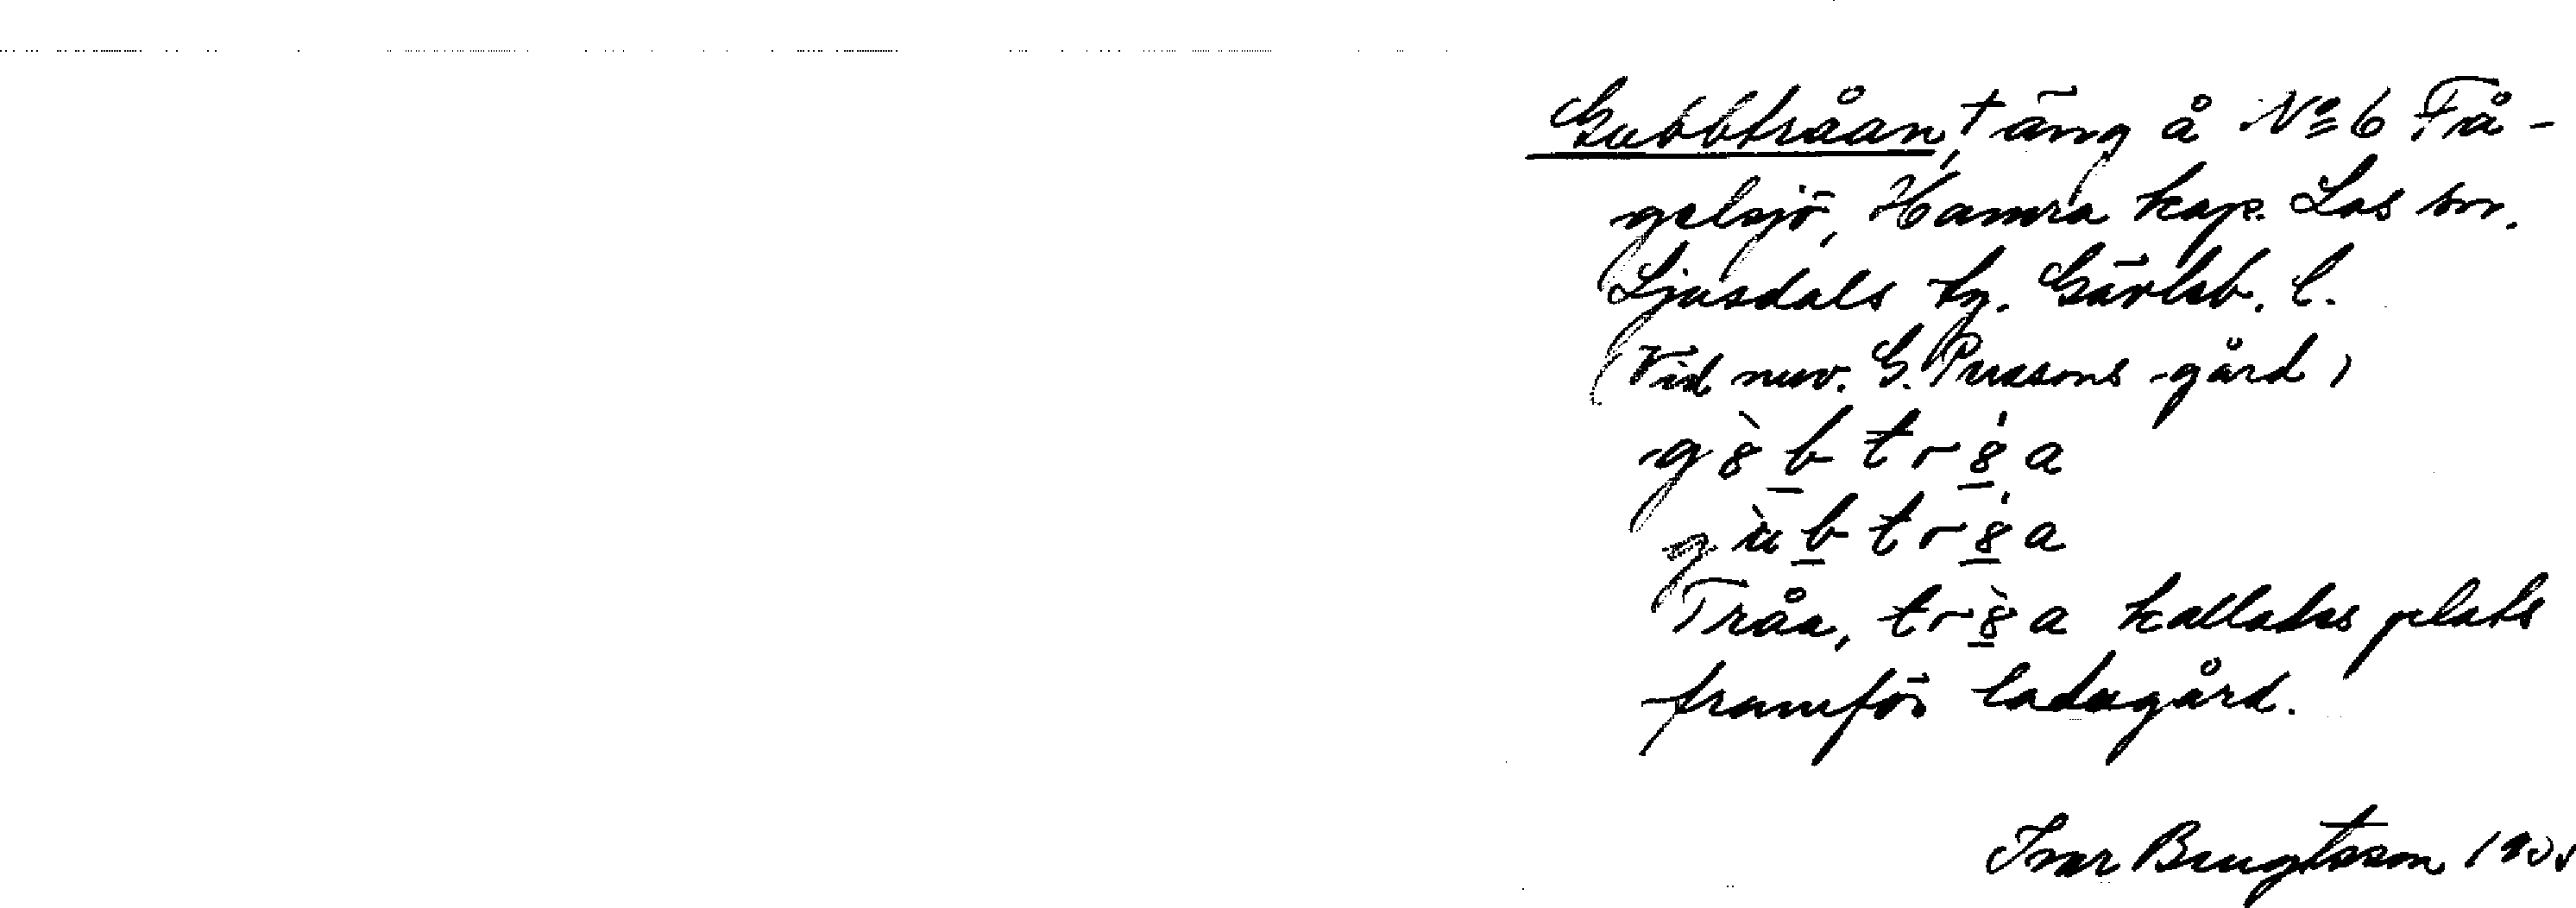 Gubbtråan, † äng å No 6 Få-
gelsjö, Hamra kap. Los sn.
Ljusdals tg. Gävleb. l.
(Vid nuv. G. Perssons gård)
g 8̀ b̲ t r 8̲́ a
g ù b̲ t r 8̲́ a
Tråa, t r 8̲̀ a kallades plats
framför ladugård.
Ivar Bengtsson